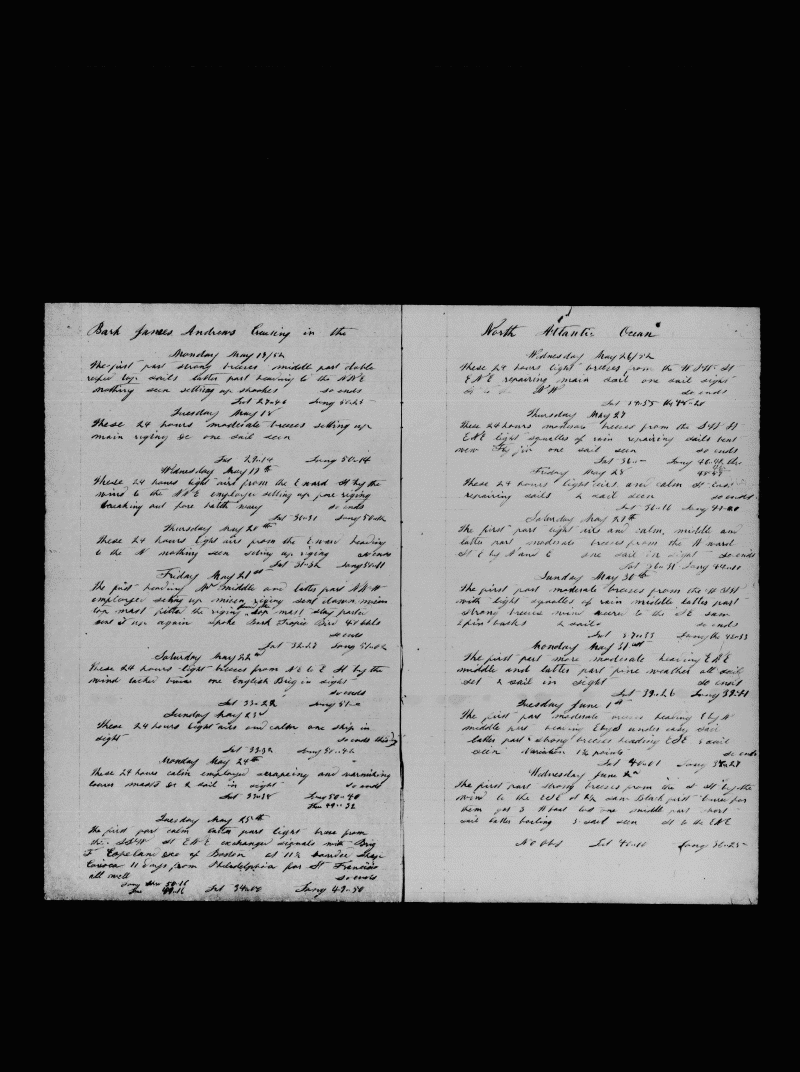 Bark James Andrews Cruising in the
Monday May 17/52
The first part strong breezes middle part double
reefed top sails latter part heading to the NNE
nothing seen setting up shooks so ends
Lat 27-46 Long 50-25
Tuesday May 18
These 24 hours moderate breezes setting up
main riging &c one sail seen
Lat 29-14 Long 50-14
Wednesday May 19th
These 24 hours light airs from the E ward St by the
wind to the NNE employed setting up fore riging
breaking out fore hatch way so ends
Lat 30-31 Long
Thursday May 20th
These 24 hours light airs from the E ward heading
to the N nothing seen setting up riging so ends
Lat 31-32 Long 50-51
Friday May 21st
The first heading middle and latter part NNW
employed seting up mizen riging sent down main
top mast fitted the riging top mast stay parted
sent it up again spoke Bark Tropic Bird 40 bbls
so ends
Lat 32-23 Long 51-02
Saturday May 22d
These 24 hours light breezes from NE to E St by the
wind tacked twice one English Brig in sight
so ends
Lat 33-22 Long
Sunday May 23d
These 24 hours light airs and calm one ship in
sight so ends this day
Lat 33-32 Long 50-42
Monday May 24th
These 24 hours calm employed scrapeing and varnishing
lower masts &c 2 sail in sight so ends
Lat 33-38 Long 50-40
Tuesday May 25th
The first part calm latter part light breze from
the SSW St ENE exchanged signals with Brig
T Copeland of Boston at 11½ boarded Ship
Carioca 11 days from Philadelphia for St Francisco
all well so ends
Lat 34-00 Long 49-50
North Atlantic Ocean
Wednesday May 26/52
These 24 hours light breezes from the WSW St
ENE repairing main sail one sail sight
so ends
Lat 34-55 48-20
Thursday May 27
These 24 hours moderate breezes from the SW St
ENE light squalls of rain repairing sails bent
new Fly jib one sail seen so ends
Lat 36- Long 46-41
Friday May 28
These 24 hours light airs and calm St East
repairing sails 2 sail seen so ends
Lat 36-16 Long
Saturday May 29th
The first part light airs and calm, middle and
latter part moderate breezes from the N ward
St E by N and E one sail in sight so ends
Lat 36-31 Long 44-10
Sunday May 30th
The first part moderate breezes from the WSW
with light squalls of rain middle latter part
strong breeze wind to the SE saw
2 sails so ends
Lat 37-33 Long 42-33
Monday May 31st
The first part more moderate heading ENE
middle and latter part fine weather all sail
set 2 sail in sight so ends
Lat 39-26 Long 39-41
Tuesday June 1st
The first part moderate breezes heading E by N
middle part heading EbyS under easy sail
latter part strong breezes heading ESE 2 sail
seen Variation 1¾ points so ends
Lat 40-01 Long 38-29
Wednesday June 2d
The first part strong breezes from the St by the
wind to the ESE at 4½ saw Black fish lowered for
them got 3 A boat lost one middle part short
sail latter boiling 3 sail seen St to the ENE
No Obs Lat 40-10 Long 36-25